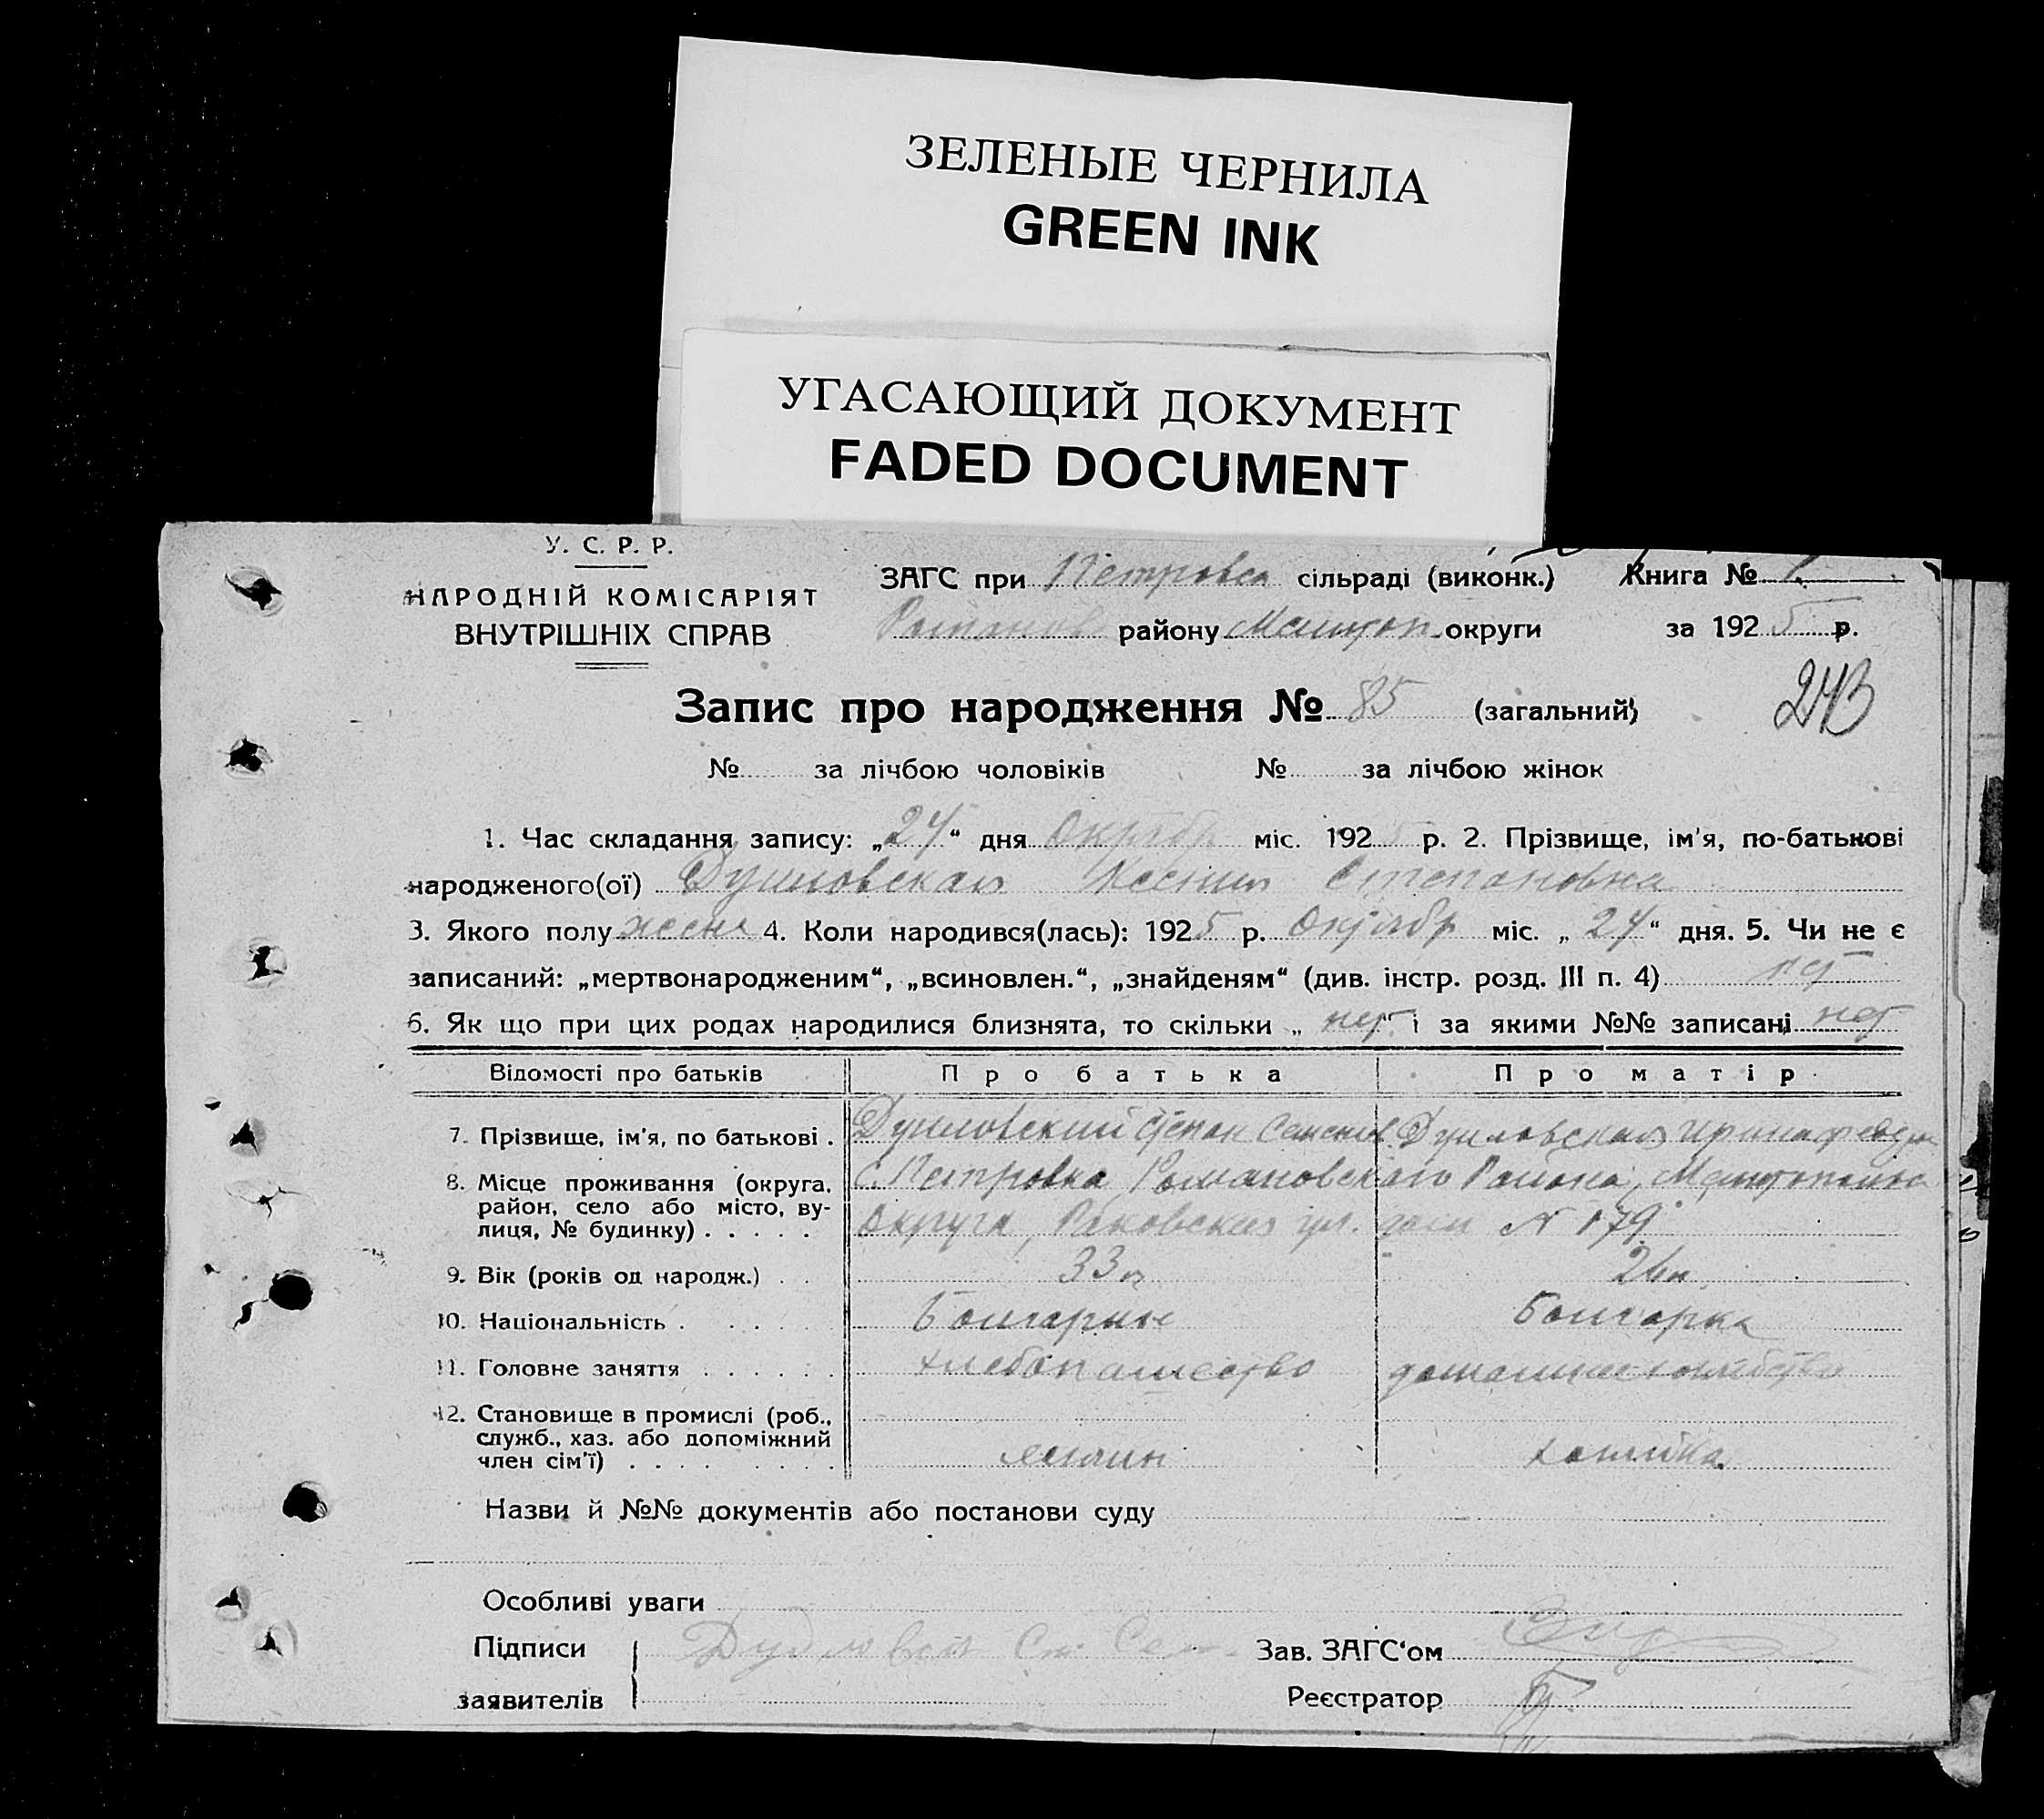 ЗЕЛЕНЫЕ ЧЕРНИЛА
GREEN INK
УГАСАЮЩИЙ ДОКУМЕНТ
FADED DOCUMENT
У. С. Р. Р.
НАРОДНІЙ КОМІСАРІЯТ
ВНУТРІШНІХ СПРАВ
ЗАГС при Петровск сільраді (виконк.) Книга №
Романов району Мелитоп. округи за 1925 р.
243
Запис про народження № 85 (загальний)
№ за лічбою чоловіків № за лічбою жінок
1. Час складання запису: „24“ дня Октябр міс. 1925 р. 2. Прізвище, ім'я, по-батькові
народженого(ої) Ксения Степановна
3. Якого полу жен 4. Коли народився(лась): 1925 р. Октябр міс. „24“ дня. 5. Чи не є
записаний: „мертвонародженим“, „всиновлен.“, „знайденям“ (див. інстр. розд. III п. 4) нет
6. Як що при цих родах народилися близнята, то скільки „ нет і за якими №№ записані нет
Відомості про батьків Про батька Про матір
7. Прізвище, ім'я, по батькові . Степан Семенов Ирина
8. Місце проживання (округа, район, село або місто, вулиця, № будинку) . . . . . с. Петровка Романовского Района, Мелитопольск
Округа, Раковская ул. дом N 179
9. Вік (років од народж.) . . 33 л 26 л
10. Національність . . . . . Болгарин Болгарка
11. Головне заняття . . . . . . хлебопашество домашнее хозяйство
12. Становище в промислі (роб., служб., хаз. або допоміжний член сім'ї) . . . . . . . . хозяйка
Назви й №№ документів або постанови суду
Особливі уваги
Підписи
заявителів
Зав. ЗАГС'ом
Реєстратор